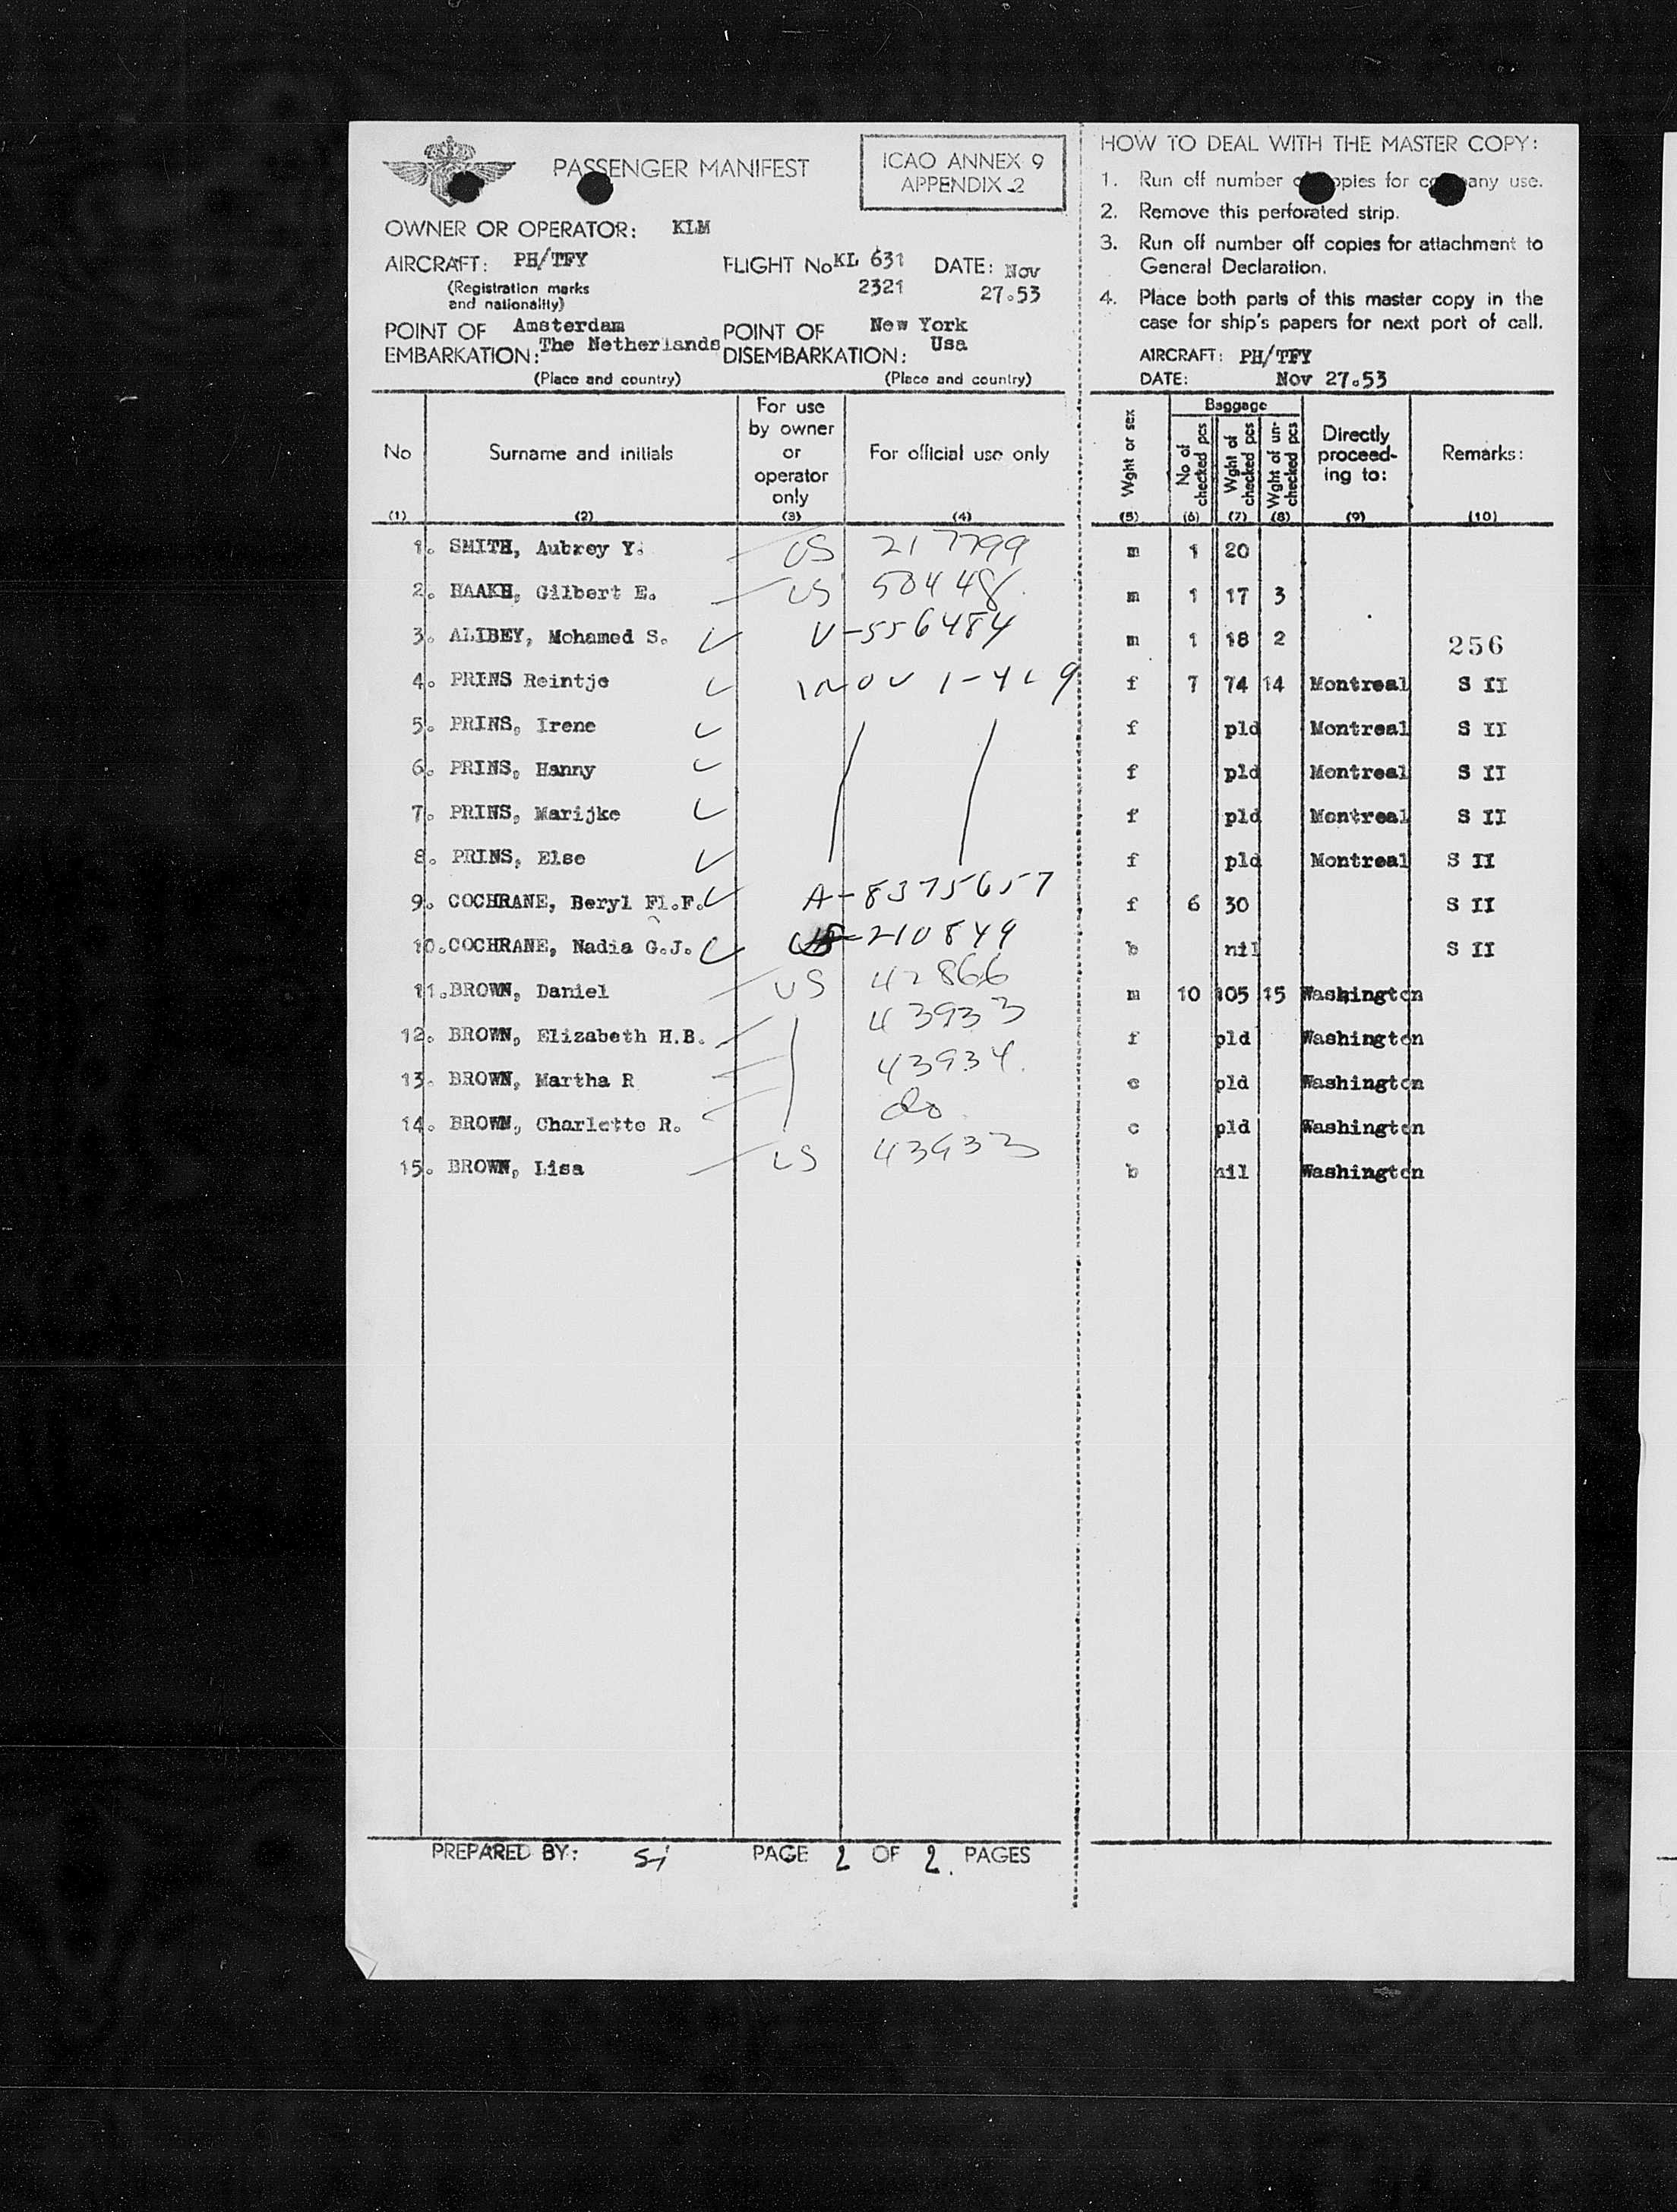 PASSENGER MANIFEST
ICAO ANNEX 9
APPENDIX 2
OWNER OR OPERATOR: KLM
AIRCRAFT: PH/TFY
(Registration marks
and nationality)
FLIGHT No KL 631
2321
DATE: Nov
27.53
POINT OF
EMBARKATION:
Amsterdam
The Netherlands
(Place and country)
POINT OF
DISEMBARKATION:
New York
Usa
(Place and country)
No Surname and initials For use by owner or operator only For official use only
(1) (2) (3) (4)
1. SMITH, Aubrey Y. US 217799
2. HAAKH, Gilbert E. US 50448
3. ALIBEY, Mohamed S. V-556484
4. PRINS Reintje
5. PRINS, Irene
6. PRINS, Hanny
7. PRINS, Marijke
8. PRINS, Else
9. COCHRANE, Beryl Fl.F. A-8375657
10. COCHRANE, Nadia G.J. 210849
11. BROWN, Daniel US 42866
12. BROWN, Elizabeth H.B. 43933
13. BROWN, Martha R 43934
14. BROWN, Charlotte R. do
15. BROWN, Lisa US 43933
PREPARED BY: Si PAGE 2 OF 2. PAGES
HOW TO DEAL WITH THE MASTER COPY:
1. Run off number of copies for company use.
2. Remove this perforated strip.
3. Run off number off copies for attachment to
General Declaration.
4. Place both parts of this master copy in the
case for ship's papers for next port of call.
AIRCRAFT: PH/TFY
DATE: Nov 27.53
Baggage
Wght or sex No of checked pcs Wght of checked pcs Wght of un-checked pcs Directly proceed-ing to: Remarks:
(5) (6) (7) (8) (9) (10)
m 1 20
m 1 17 3
m 1 18 2 256
f 7 74 14 Montreal S II
f pld Montreal S II
f pld Montreal S II
f pld Montreal S II
f pld Montreal S II
f 6 30 S II
b nil S II
m 10 105 15 Washington
f pld Washington
c pld Washington
c pld Washington
b nil Washington